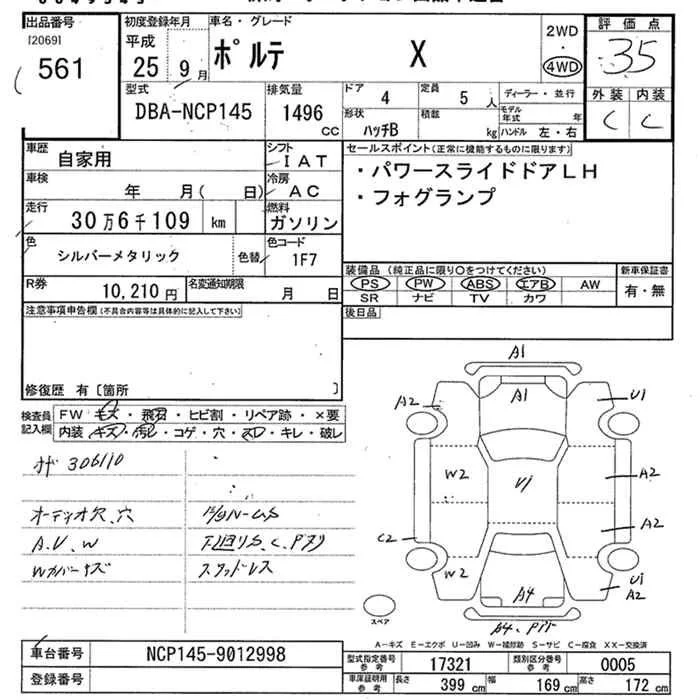 出品番号
[2069]
561
初度登録年月
平成
25 9月
車名・グレード
ポルテ X
2WD
・
4WD
評価点
35
外装 内装
C C
型式
DBA-NCP145
排気量
1496
CC
ドア 4
定員 5人
形状 ハッチB
積載 kg
ディーラー・並行
モデル年式 年
ハンドル 左・右
車歴
自家用
シフト
IAT
車検
年 月( 日)
冷房
AC
走行
30万6千109 km
燃料
ガソリン
色
シルバーメタリック
色替
色コード
1F7
R券
10,210円
名変通知期限
月 日
セールスポイント(正常に機能するものに限ります)
・パワースライドドアLH
・フォグランプ
装備品(純正品に限り○をつけてください)
PS PW ABS エアB AW
SR ナビ TV カワ
新車保証書
有・無
後日品
注意事項申告欄(不具合内容等は具体的に記入して下さい)
修復歴 有〔箇所 〕
検査員
記入欄
FW キズ・飛石・ヒビ割・リペア跡・×要
内装 キズ・汚レ・コゲ・穴・スレ・キレ・破レ
306110
オーディオ穴、穴
A.U.W
スタッドレス
A1
A1
A2
U1
W2
U1
A2
A2
C2
W2
A4
U1
A2
スペア
A-キズ E-エクボ U-凹み W-補修跡 S-サビ C-腐食 XX-交換済
車台番号
NCP145-9012998
登録番号
型式指定番号
参考
17321
類別区分番号
参考
0005
車庫証明用
参考
長さ
399 cm
幅
169 cm
高さ
172 cm